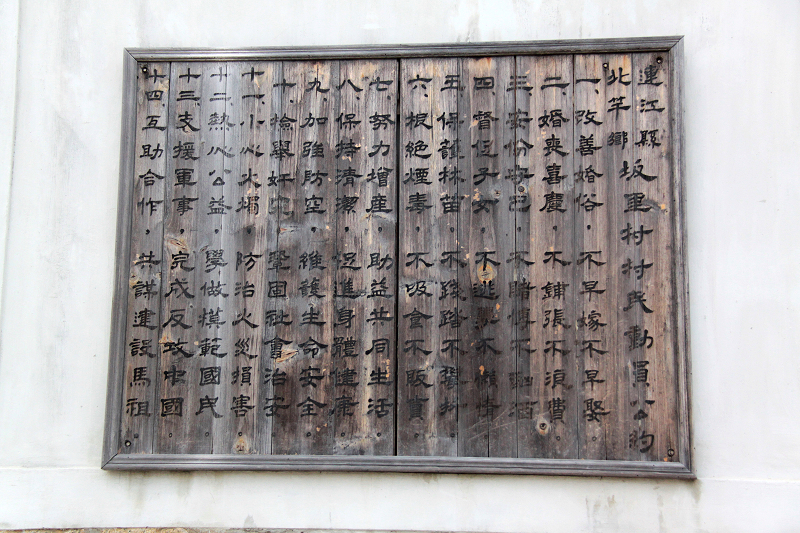 連江縣
北竿鄉
坂里村村民動員公約
一、改善婚俗,不早嫁不早娶
二、婚喪喜慶,不鋪張不浪費
三、安份守己,不賭博不酗酒
四、督促子女,不逃 不
五、保護林苗,不踐踏不攀折
六、根絕煙毒,不吸食不販賣
七、努力增產,助益共同生活
八、保持清潔,促進身體健康
九、加強防空,維護生命安全
十、檢舉奸宄,鞏固社會治安
十一、小心火燭,防治火災損害
十二、熱心公益,學做模範國民
十三、支援軍事,完成反攻中國
十四、互助合作,共謀建設馬祖